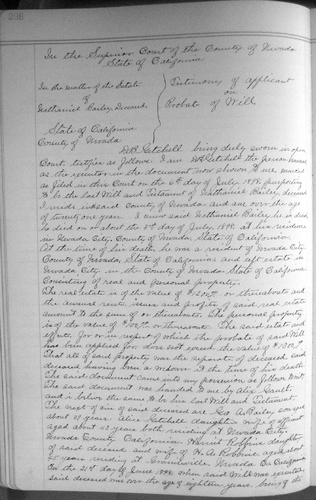 298
In the Superior Court of the County of Nevada
State of California
In the matter of the Estate
of
Nathaniel Bailey, Deceased
Testimony of applicant
on
Probate of Will
State of California
County of Nevada
Getchell being duly sworn in open
Court, testifies as follows: I am Getchell the person named
as the executor in the document now shown to me, marked
as filed in this Court on the 6th day of July 1898, purporting
to be the last Will and Testament of Nathaniel Bailey, deceased
I reside in said County of Nevada and am over the age
of twenty one years. I knew said Nathaniel Bailey, he is dead
he died on or about the day of July, 1898, at his residence
in Nevada City, County of Nevada, State of California.
At the time of his death he was a resident of Nevada City,
County of Nevada, State of California and left estate in
Nevada City in the County of Nevada State of California
Consisting of real and personal property.
The real estate is of the value of or thereabouts and
the annual rents, issues and profits of said real estate
amount to the sum of or thereabouts. The personal property
is of the value of or thereabouts. The said estate and
effects, for or in respect of which the probate of said Will
has been applied for does not exceed the value of
That all of said property was the separate of deceased, said
deceased having been a at the time of his death
The said document came into my possession as follows
The said document was handed to me by
and is below the same to be his last Will and Testament.
The next of kin of said deceased are Geo. A. Bailey son aged
about 27 years. Alice Getchell daughter, wife of affiant
aged about 23 years both reside at Nevada City
Nevada County California. Harriet Robbins daughter
of said deceased and wife of Robbins aged about
years residing at Nevada Co California
On the 21st day of June 1898 when said Will was executed
said deceased was over the age of eighteen years, being of the